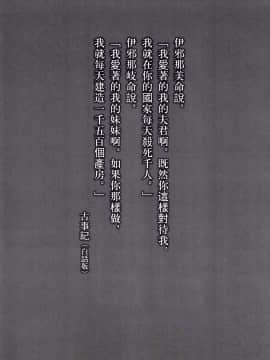 伊邪那美命說、
「我愛著的我的夫君啊、既然你這樣對待我、
我就在你的國家每天殺死千人。」
伊邪那岐命說、
「我愛著的我的妹妹啊、如果你那樣做、
我就每天建造一千五百個產房。」
古事記（白話版）